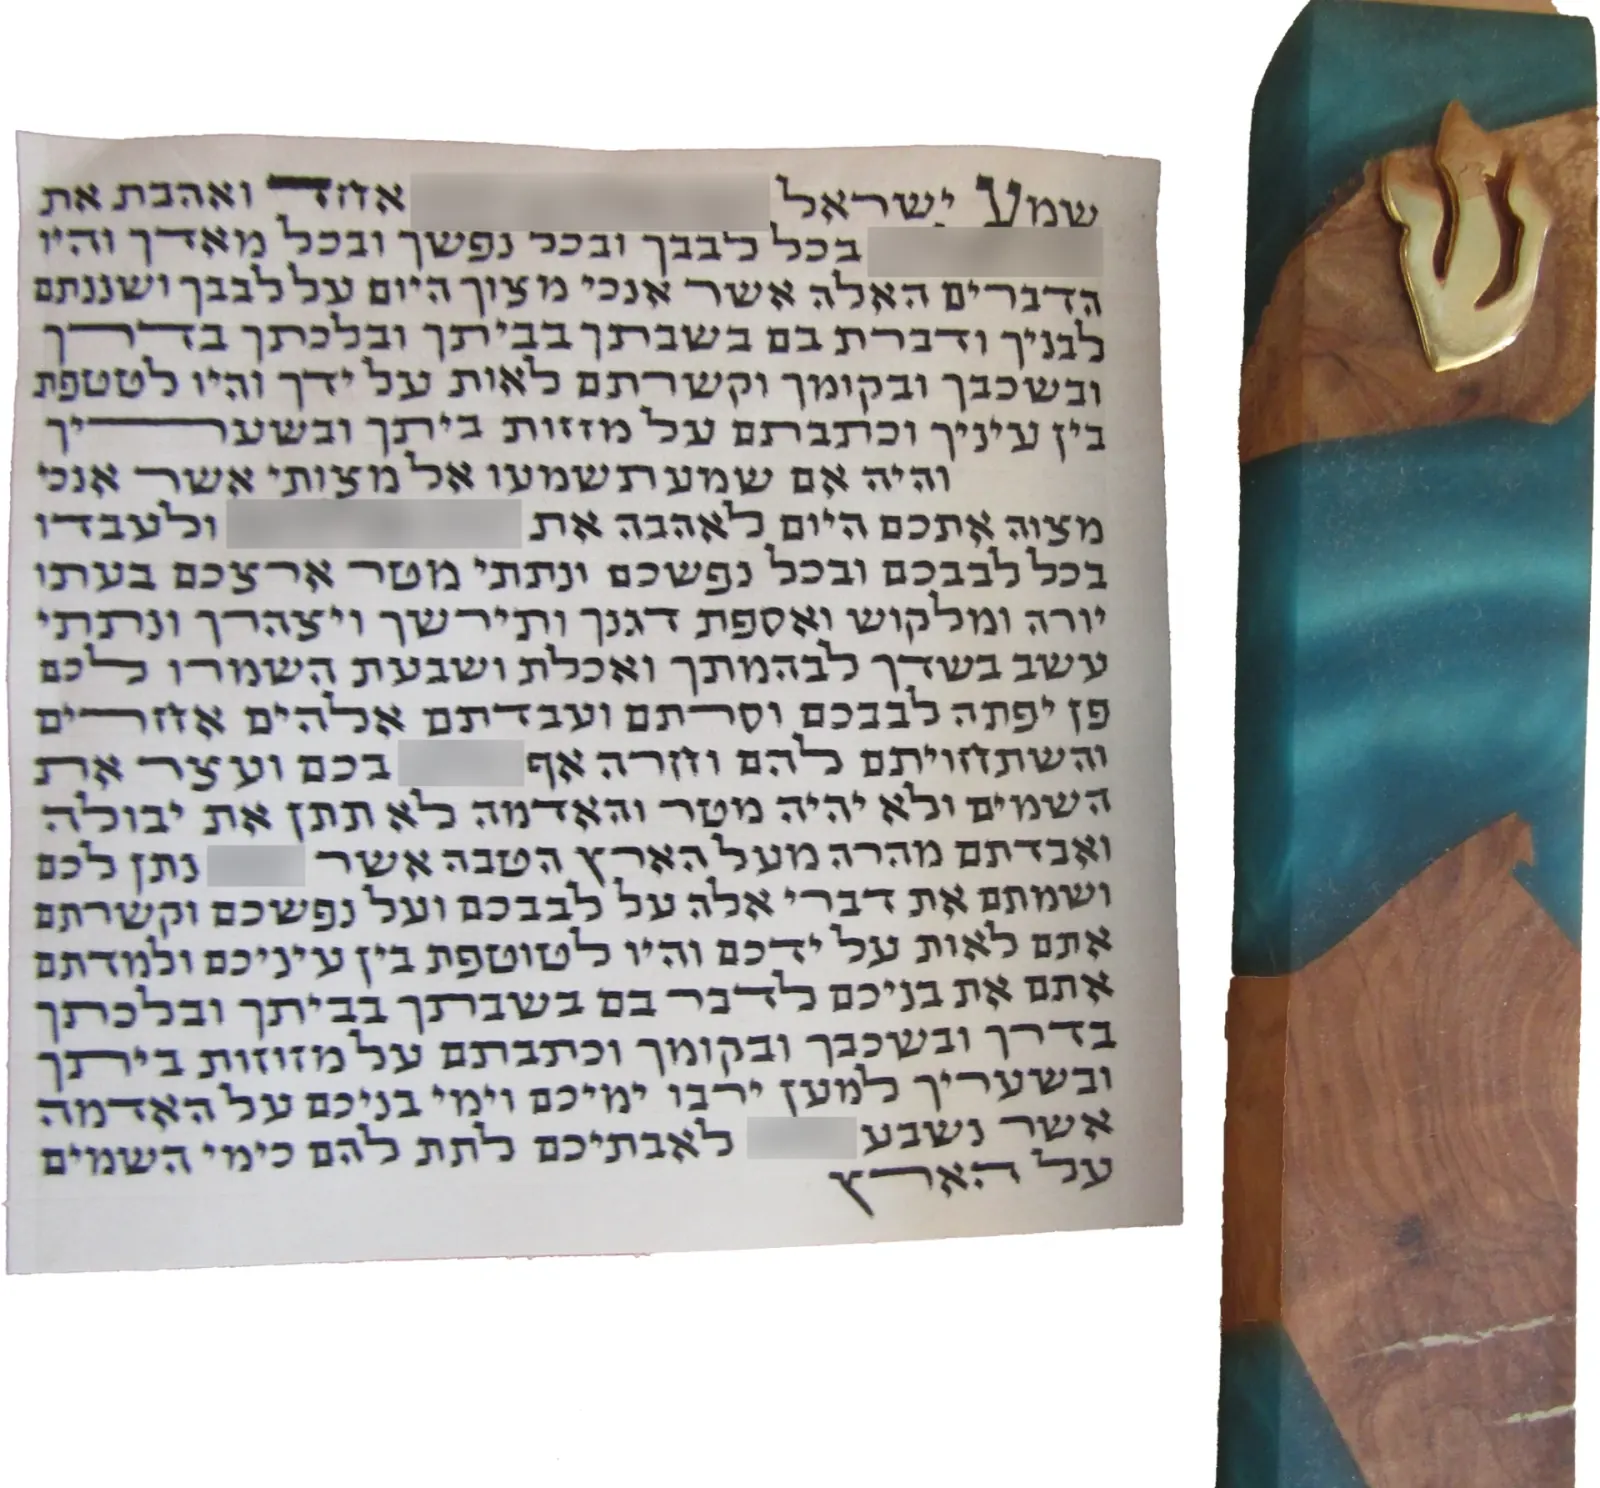 שמע ישראל אחד ואהבת את
בכל לבבך ובכל נפשך ובכל מאדך והיו
הדברים האלה אשר אנכי מצוך היום על לבבך ושננתם
לבניך ודברת בם בשבתך בביתך ובלכתך בדרך
ובשכבך ובקומך וקשרתם לאות על ידך והיו לטטפת
בין עיניך וכתבתם על מזזות ביתך ובשעריך
והיה אם שמע תשמעו אל מצותי אשר אנכי
מצוה אתכם היום לאהבה את ולעבדו
בכל לבבכם ובכל נפשכם ונתתי מטר ארצכם בעתו
יורה ומלקוש ואספת דגנך ותירשך ויצהרך ונתתי
עשב בשדך לבהמתך ואכלת ושבעת השמרו לכם
פן יפתה לבבכם וסרתם ועבדתם אלהים אחרים
והשתחויתם להם וחרה אף בכם ועצר את
השמים ולא יהיה מטר והאדמה לא תתן את יבולה
ואבדתם מהרה מעל הארץ הטבה אשר נתן לכם
ושמתם את דברי אלה על לבבכם ועל נפשכם וקשרתם
אתם לאות על ידכם והיו לטוטפת בין עיניכם ולמדתם
אתם את בניכם לדבר בם בשבתך בביתך ובלכתך
בדרך ובשכבך ובקומך וכתבתם על מזוזות ביתך
ובשעריך למען ירבו ימיכם וימי בניכם על האדמה
אשר נשבע לאבתיכם לתת להם כימי השמים
על הארץ
ש